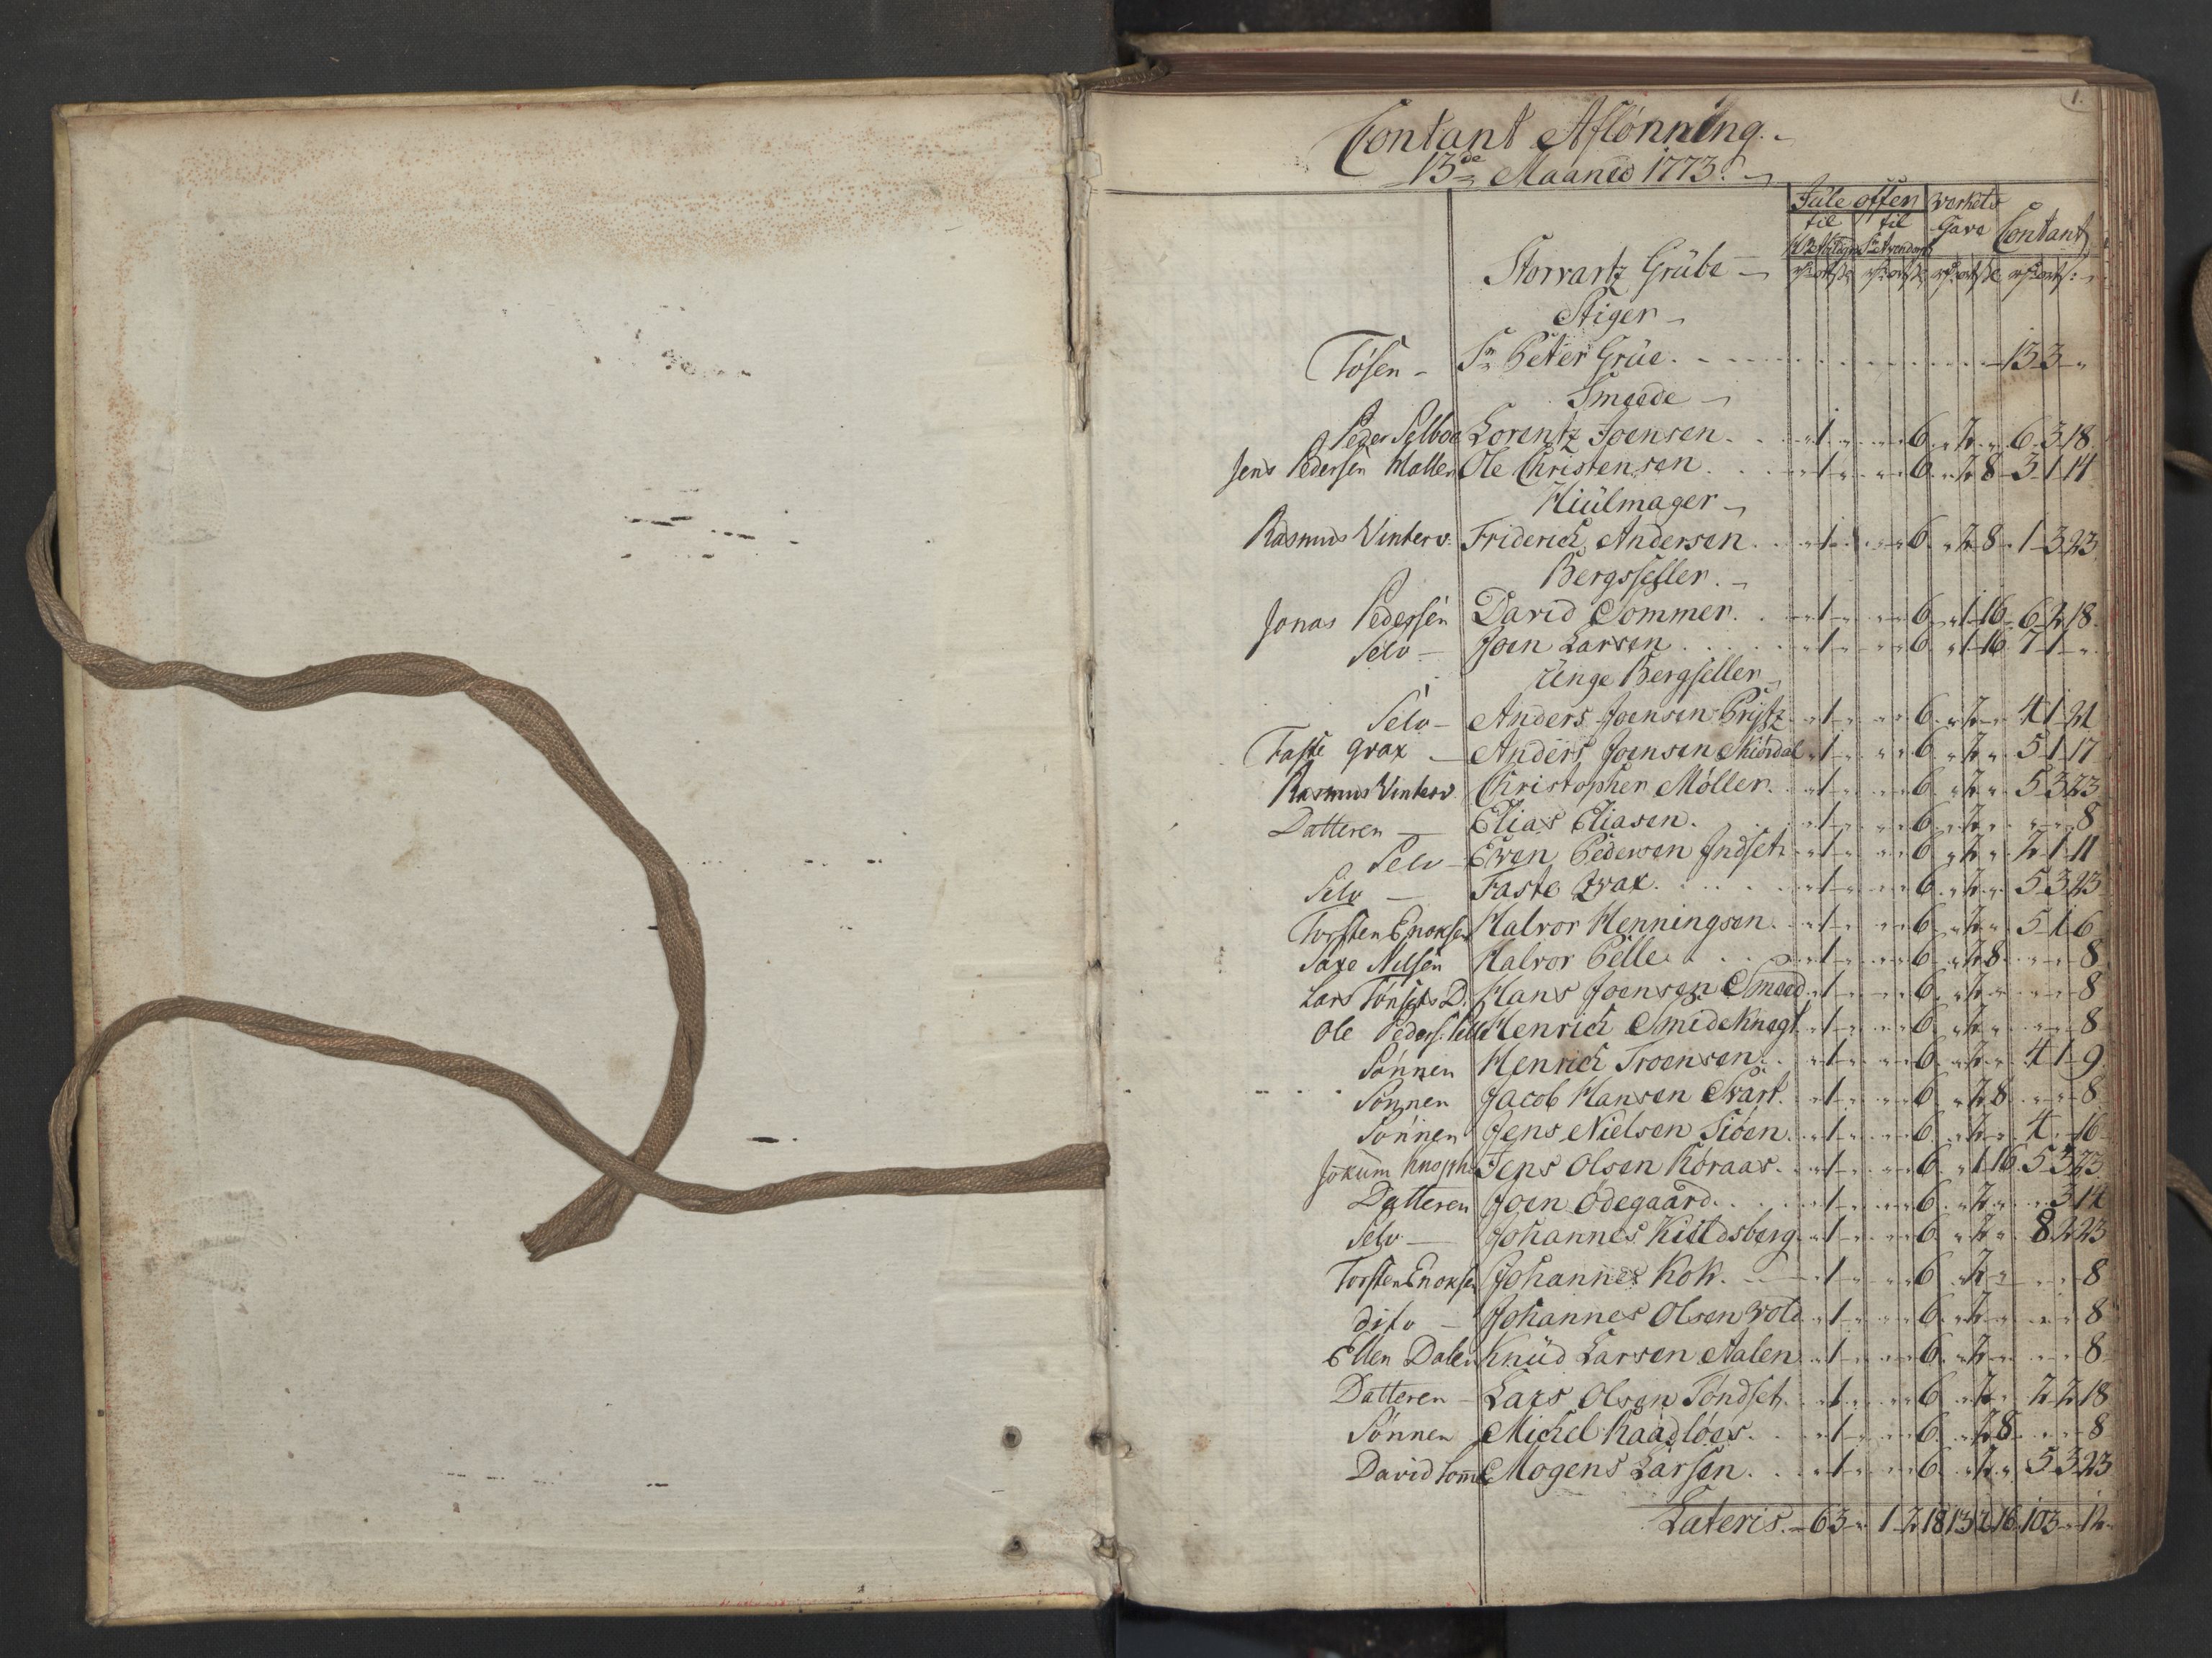 1.
Contant Aflönning.
13de Maaned 1773.
Jule offer Werkets
til til Gave Contant
Storvartz Grübe
Stiger
Tösen - Sr Peter Grüe. 13 3 "
Smeede
Peder Selboe Lorentz Joensen. " 1 " " " 6 " 2 " 6 3 18
Jens Pedersen Ole Christensen. " 1 " " " 6 " 2 8 3 1 14
Hiülmager
Rasmus Vinterv. Friderich Andersen. " 1 " " " 6 " 2 8 1 3 23
Bergsseller.
Jonas Pedersen David Sommer. " 1 " " " 6 " 1 16 6 2 18
Selv - Joen Larsen. " 1 " " " 6 " 1 16 7 1 "
Unge Bergseller
Selv - Anders Joensen " 1 " " " 6 " 2 " 4 1 21
Faste Grax - Anders Joensen Stiördal " 1 " " " 6 " 2 " 5 1 17
Rasmus Vinterv Christopher Möller. " 1 " " " 6 " 2 " 5 3 23
Datteren - Elias Eliasen. " 1 " " " 6 " 2 " " " 8
Selv - Even Pedersen Indset " 1 " " " 6 " 2 " 2 1 11
Selv - Faste Grax. " 1 " " " 6 " 2 " 5 3 23
Torsten Enoksen Halvor Henningsen. " 1 " " " 6 " 2 " 5 1 6
Saxe Nilsen Halvor Pelle. " 1 " " " 6 " 2 8 " " 8
Lars Tönsets D. Hans Joensen Smeed " 1 " " " 6 " 2 " " " 8
Ole Peders. Henrich Smideknegt " 1 " " " 6 " 2 " " " 8
Sönnen Henrich Troensen. " 1 " " " 6 " 2 " 4 1 9
Sönnen Jacob Hansen Svart. " 1 " " " 6 " 2 8 " " 8
Sönnen Jens Nielsen Siöen. " 1 " " " 6 " 2 " 4 " 16
Jokum Knoph Jens Olsen Röraas. " 1 " " " 6 " 1 16 5 3 23
Datteren Joen Ödegaard. " 1 " " " 6 " 2 " " 3 14
Selv - Johannes Kieldsberg " 1 " " " 6 " 2 " 8 2 23
Torsten Enoksen Johannes Kok. " 1 " " " 6 " 2 " " " 8
dito - Johannes Olsen Vold " 1 " " " 6 " 2 " " " 8
Ellen Dalen Knüd Larsen Aalen " 1 " " " 6 " 2 " " " 8
Datteren - Lars Olsen Töndset. " 1 " " " 6 " 2 " 2 2 18
Sönnen Michel Raadlöes. " 1 " " " 6 " 2 8 " " 8
David Som̄er Mogens Larsen. " 1 " " " 6 " 2 " 5 3 23
Lateris. 6 3 " 1 2 18 13 2 16 103 " 12